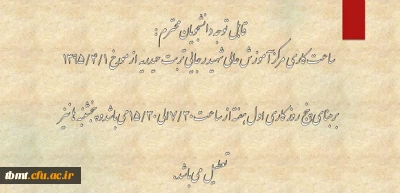 قابل توجه دانشجویان محترم :
ساعت کاری مرکز آموزش عالی شهید رجایی تربت حیدریه از مورخ ۱۳۹۵/۴/۱
بر مبنای پنج روز کاری اول هفته از ساعت ۷/۲۰ الی ۱۵/۲۰ می باشد و پنجشنبه ها نیز
تعطیل می باشد.
tbmt.cfu.ac.ir